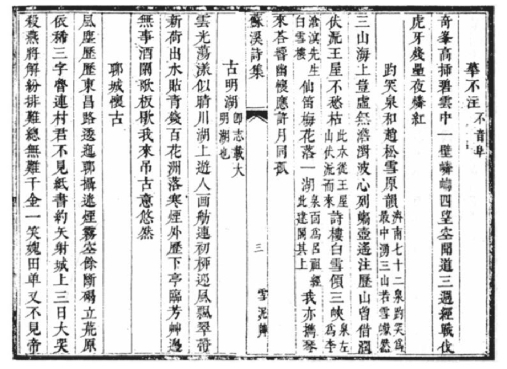 華不注 不音阜
奇峯高插碧雲中一壁嶙峋四望空聞道三週經戰伐
虎牙殘壘夜燐紅
趵突泉和趙松雪原韻 濟南七十二泉趵突爲最中湧三山若雪然
三山海上虛無澹波心到壺遙注歷山曾借潤
伏流王屋不愁枯 此水從王屋山伏流而來 詩樓白雪傾三峽 泉左爲李
滄溟先生白雪樓 仙笛梅花落一湖 泉西爲呂祖此建閣其上 我亦攜琴
來答響幽懷應許月同孤
蘇溪詩集 三 雪泥艸
古明湖 卽志載大明湖也
雲光蕩漾似晴川湖上遊人畫舫連初柳迎風飄翠帶
新荷出水貼青錢百花洲落寒煙外歷下亭臨芳艸邊
無事酒闌歌板歇我來弔古意悠然
聊城懷古
風塵歷歷東昌路遂過聊攝遠煙霧空餘斷碣立荒原
依稀三字魯連村君不見紙書約矢射城上三日大哭
殺燕將解紛排難總無難千金一笑田單又不見帝